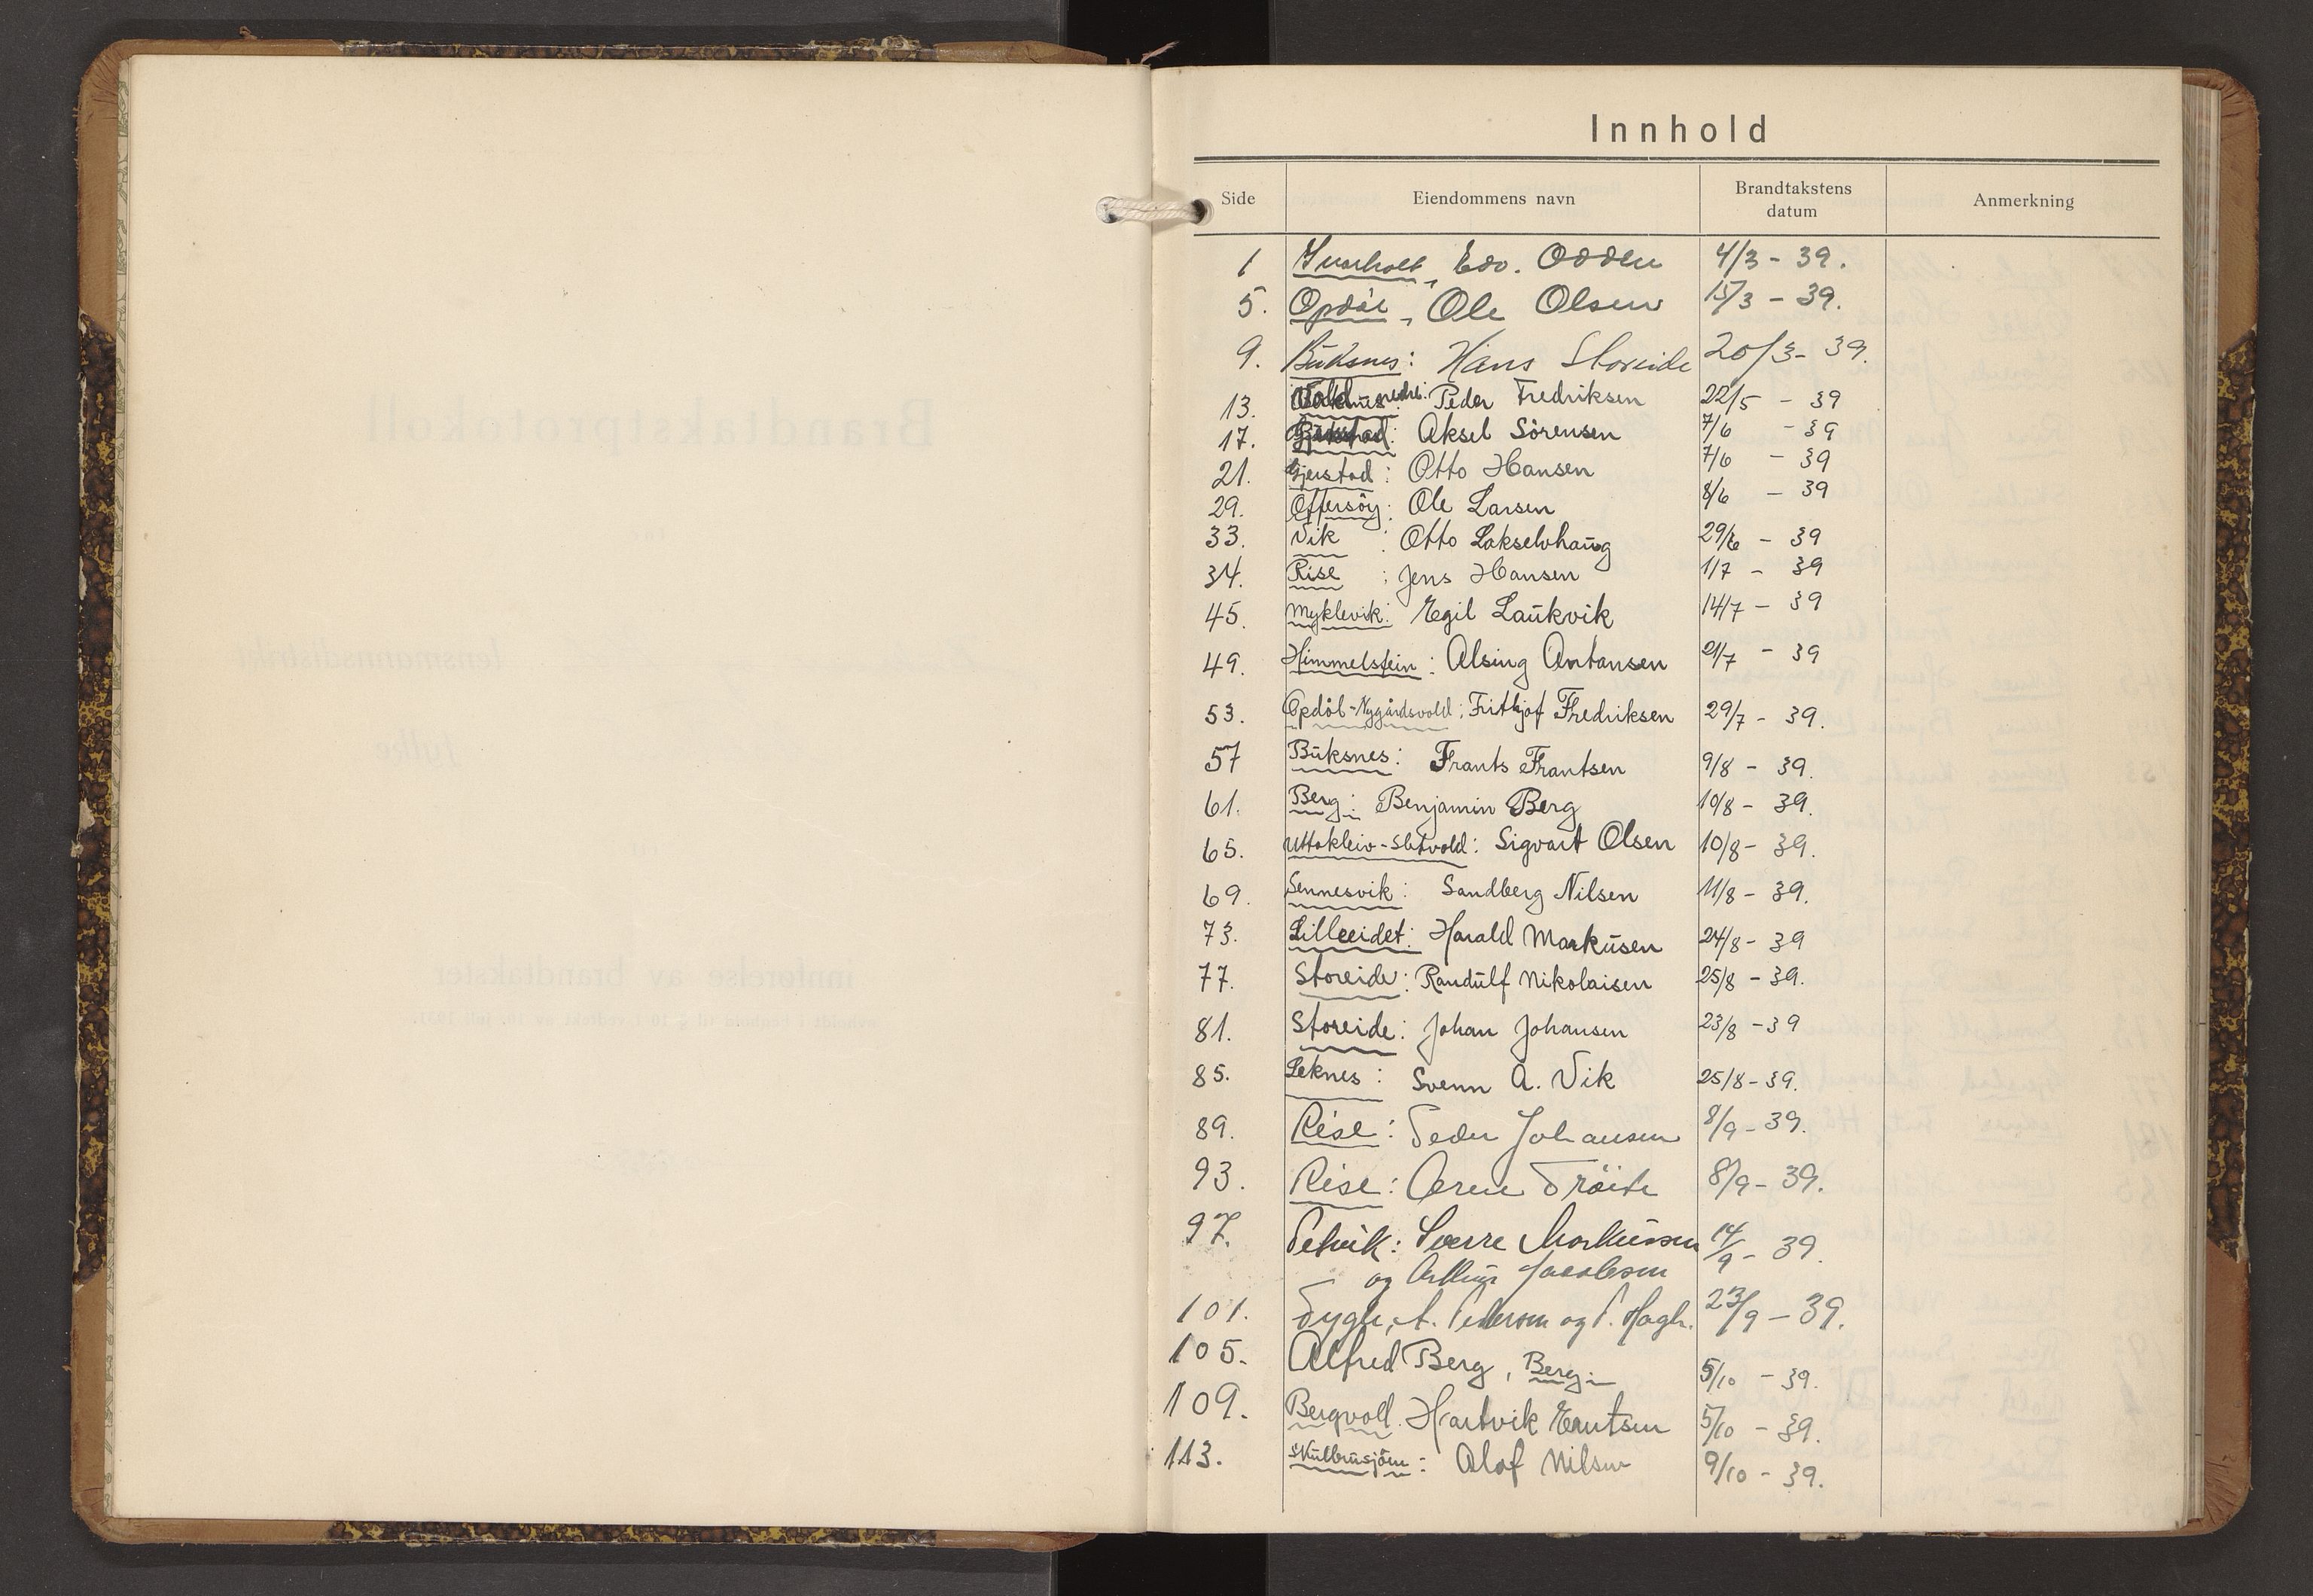 Innhold
Side Eiendommens navn Brandtakstens datum Anmerkning
1 Edv. Odden 4/3 - 39.
5. Opdöl, Ole Olsen 15/3 - 39.
9. Buksnes: Hans Storeide 20/3 - 39.
13. Vold nedre: Peder Fredriksen 22/5 - 39
17. Aksel Sörensen 7/6 - 39
21. Gjerstad: Otto Hansen 7/6 - 39
29. Offersöy: Ole Larsen 8/6 - 39
33. Vik : Otto Lakselvhaug 29/6 - 39
34. Rise : Jens Hansen 1/7 - 39
45. Myklevik: Egil Laukvik 14/7 - 39
49. Himmelstein: Alsing Antonsen 21/7 - 39
53. Opdöl-Nygårdsvold: Frithjof Fredriksen 29/7 - 39.
57 Buksnes: Frants Frantsen 9/8 - 39.
61. Berg: Benjamin Berg 10/8 - 39.
65. Uttakleiv-Sletvold: Sigvart Olsen 10/8 - 39.
69. Sennesvik: Sandberg Nilsen 11/8 - 39.
73. Lilleeidet: Harald Markusen 24/8 - 39
77. Storeide: Randulf Nikolaisen 25/8 - 39.
81. Storeide: Johan Johansen 23/8 - 39
85. Leknes: Svenn A. Vik 25/8 - 39.
89. Rise: Peder Johansen 8/9 - 39.
93. Rise: Arne Tröite 8/9 - 39.
97. Petvik: Sverre Markussen 14/9 - 39.
og Arthur Jacobsen
101. Tygle, A. Pedersen og P. Hagh. 23/9 - 39.
105. Alfred Berg, Berg 5/10 - 39.
109. Bergvoll. Hartvik Entsen 5/10 - 39.
113. Skulbrusjöen: Olof Nilsen 9/10 - 39.